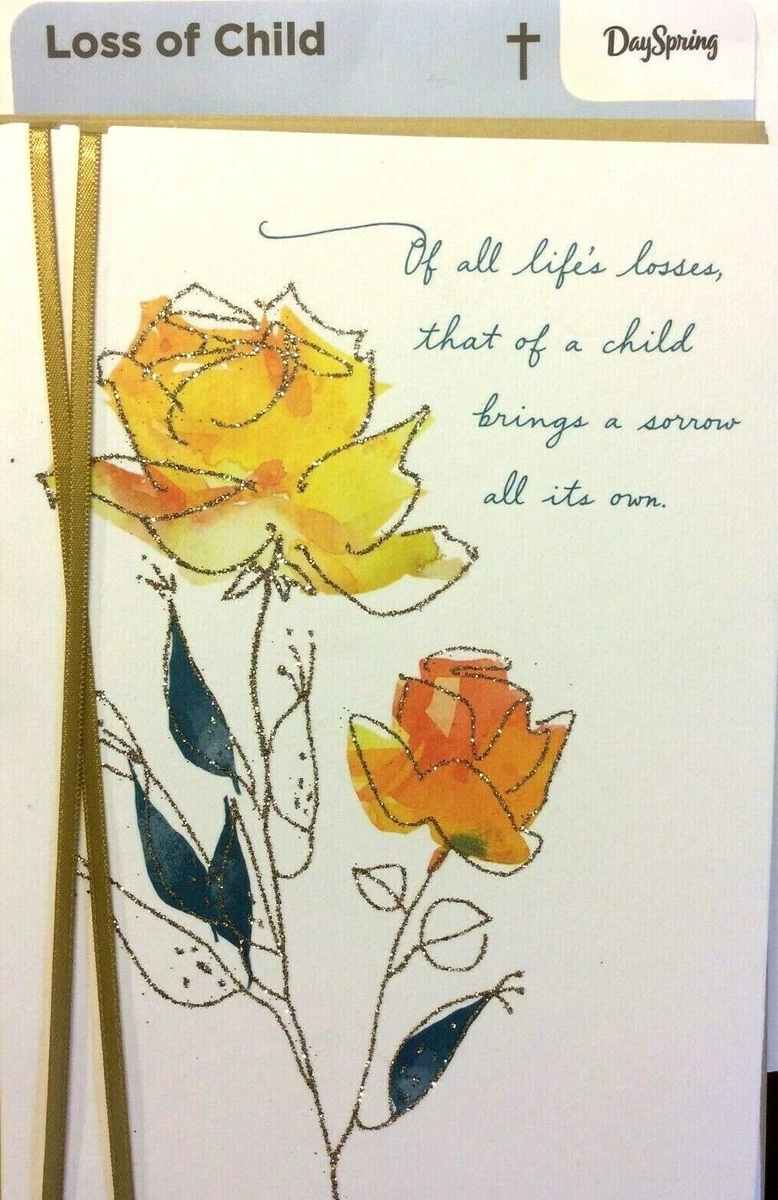 Loss of Child
DaySpring
Of all life's losses,
that of a child
brings a sorrow
all its own.